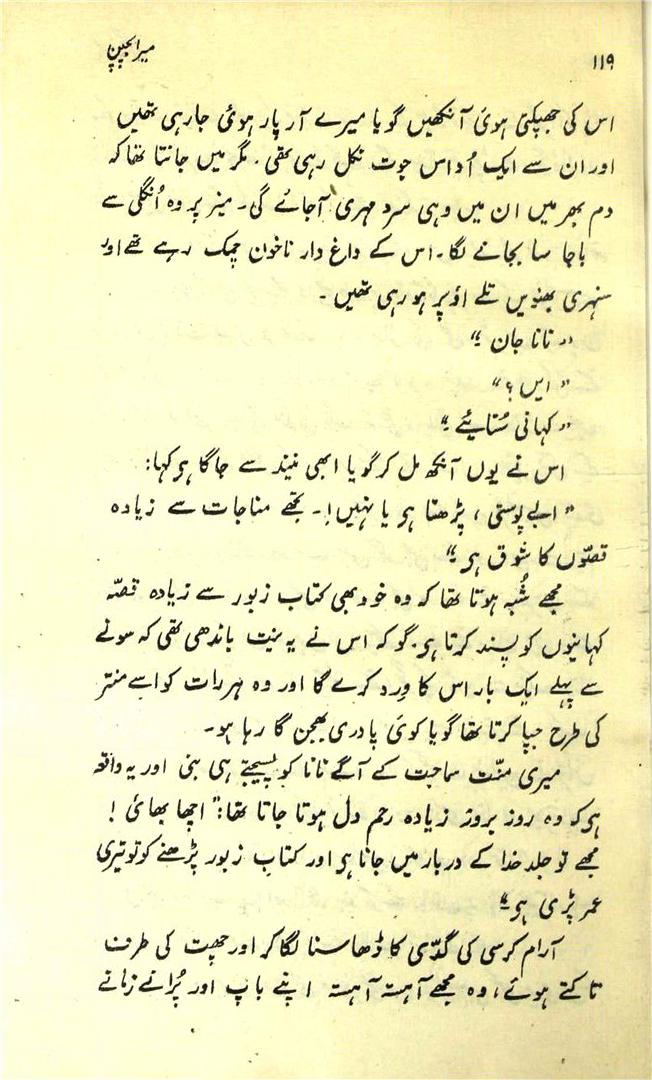 ۱۱۹ میرا بچپن
اس کی جھپکتی ہوئی آنکھیں گویا میرے آر پار ہوئی جارہی تھیں
اور ان سے ایک اُداس جوت نکل رہی تھی. مگر میں جانتا تھا کہ
دم بھر میں ان میں وہی سرد مہری آجائے گی۔ میز پر وہ اُنگلی سے
باجا سا بجانے لگا۔ اس کے داغ دار ناخون چمک رہے تھے اور
سنہری بھنویں تلے اوپر ہو رہی تھیں۔
"نانا جان"
"ایں؟"
"کہانی سُنائیے"
اس نے یوں آنکھ مل کر گویا ابھی نیند سے جاگا ہو کہا:
"ابے پوستی، پڑھنا ہو یا نہیں!۔ تجھے مناجات سے زیادہ
قصّوں کا شوق ہو"
مجھے شُبہ ہوتا تھا کہ وہ خود بھی کتاب زبور سے زیادہ قصّہ
کہانیوں کو پسند کرتا ہو. گو کہ اس نے یہ منت باندھی تھی کہ سونے
سے پہلے ایک بار اس کا وِرد کرے گا اور وہ ہر رات کو اسے منتر
کی طرح جپا کرتا تھا گویا کوئی پادری بھجن گا رہا ہو۔
میری منّت سماجت کے آگے نانا کو پسیجتے ہی بنی اور یہ واقعہ
ہو کہ وہ روز بروز زیادہ رحم دل ہوتا جاتا تھا: "اچھا بھائی!
مجھے تو جلد خدا کے دربار میں جانا ہو اور کتاب زبور پڑھنے کو تو تیری
عمر پڑی ہو"
آرام کرسی کی گدّی کا ڈھاسنا لگا کر اور چھت کی طرف
تاکتے ہوئے، وہ مجھے آہستہ آہستہ اپنے باپ اور پُرانے زمانے